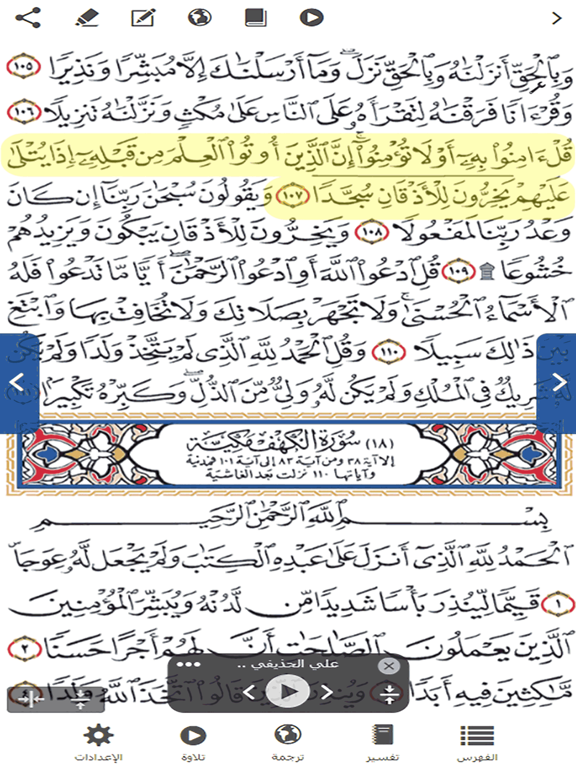 وَبِالْحَقِّ أَنزَلْنَاهُ وَبِالْحَقِّ نَزَلَ ۗ وَمَا أَرْسَلْنَاكَ إِلَّا مُبَشِّرًا وَنَذِيرًا ١٠٥
وَقُرْءَانًا فَرَقْنَاهُ لِتَقْرَأَهُ عَلَى النَّاسِ عَلَىٰ مُكْثٍ وَنَزَّلْنَاهُ تَنزِيلًا ١٠٦
قُلْ ءَامِنُوا بِهِ أَوْ لَا تُؤْمِنُوا ۚ إِنَّ الَّذِينَ أُوتُوا الْعِلْمَ مِن قَبْلِهِ إِذَا يُتْلَىٰ
عَلَيْهِمْ يَخِرُّونَ لِلْأَذْقَانِ سُجَّدًا ١٠٧ وَيَقُولُونَ سُبْحَٰنَ رَبِّنَا إِن كَانَ
وَعْدُ رَبِّنَا لَمَفْعُولًا ١٠٨ وَيَخِرُّونَ لِلْأَذْقَانِ يَبْكُونَ وَيَزِيدُهُمْ
خُشُوعًا ۩ ١٠٩ قُلِ ادْعُوا اللَّهَ أَوِ ادْعُوا الرَّحْمَٰنَ ۖ أَيًّا مَّا تَدْعُوا فَلَهُ
الْأَسْمَاءُ الْحُسْنَىٰ ۚ وَلَا تَجْهَرْ بِصَلَاتِكَ وَلَا تُخَافِتْ بِهَا وَابْتَغِ
بَيْنَ ذَٰلِكَ سَبِيلًا ١١٠ وَقُلِ الْحَمْدُ لِلَّهِ الَّذِي لَمْ يَتَّخِذْ وَلَدًا وَلَمْ يَكُن
لَّهُ شَرِيكٌ فِي الْمُلْكِ وَلَمْ يَكُن لَّهُ وَلِيٌّ مِّنَ الذُّلِّ ۖ وَكَبِّرْهُ تَكْبِيرًا
(١٨) سُورَةُ الْكَهْفِ مَكِّيَّة
إلا آية ٣٨ ومن آية ٨٣ إلى آية ١٠١ فمدنية
وآياتها ١١٠ نزلت بعد الغاشية
بِسْمِ اللَّهِ الرَّحْمَٰنِ الرَّحِيمِ
الْحَمْدُ لِلَّهِ الَّذِي أَنزَلَ عَلَىٰ عَبْدِهِ الْكِتَابَ وَلَمْ يَجْعَل لَّهُ عِوَجًا
١ قَيِّمًا لِّيُنذِرَ بَأْسًا شَدِيدًا مِّن لَّدُنْهُ وَيُبَشِّرَ الْمُؤْمِنِينَ
الَّذِينَ يَعْمَلُونَ الصَّالِحَاتِ أَنَّ لَهُمْ أَجْرًا حَسَنًا ٢
مَّاكِثِينَ فِيهِ أَبَدًا ٣ وَيُنذِرَ قَالُوا اتَّخَذَ اللَّهُ وَلَدًا
علي الحذيفي ..
الفهرس
تفسير
ترجمة
تلاوة
الإعدادات